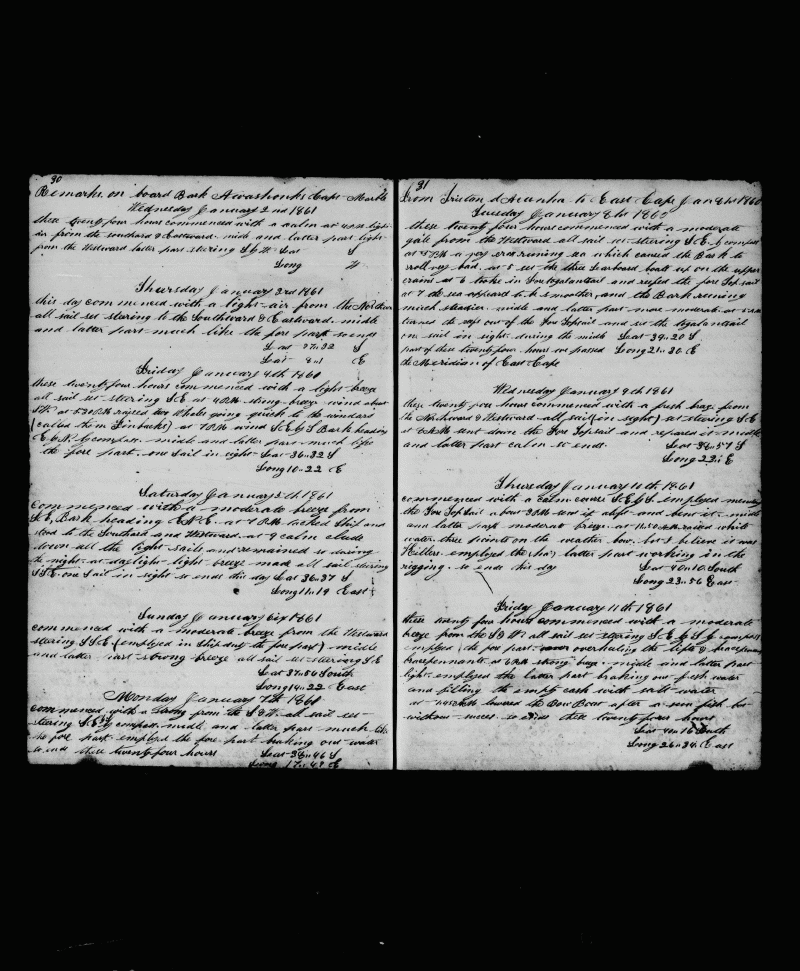 90
Remarks on board Bark Awashonks Capt Marble
Wednesday January 2nd 1861
these twenty four hours commenced with a calm at 4 light
air from the southard & Eastward. midle and latter part light
from the Westward latter part stearing S by W Lat S
Long W
Thursday January 3rd 1861
this day commenced with a light air from the Northern
all sail set stering to the Southward & Eastward. midle
and latter part much like the fore part so ends
Lat 37..32 S
Lat 8..1 E
Friday January 4th 1861
these twenty four hours commenced with a light breeze
all sail set stering S E at 4 strong breeze wind about
SW at 5 30 PM raised two Whales going quick to the windard
(called them Finbacks) at 7 PM wind S E by S Bark heading
E by N by compass. midle and latter part much like
the fore part, one Sail in sight Lat 36..32 S
Long 10..22 E
Saturday January 5th 1861
Commenced with a moderate breeze from
S E, Bark heading E N E. at 7 PM tacked Ship and
stood to the Southard and Westward. at 9 calm clued
down all the light sails and remained so during
the night. at daylight light breeze made all sail stering
S S E. one Sail in sight so ends this day Lat 36..37 S
Long 11..19 East
Sunday January 6th 1861
commenced with a moderate breeze from the Westward
stering S S E (employed in Ship duty the fore part) midle
and latter part strong breeze all sail set stering S E
Lat 37..54 South
Long 14..22 East
Monday January 7th 1861
commenced with a from the S W all sail set
stering S E by compass, midle and latter part much like
the fore part employed the fore part braking out water
so ends these twenty four hours Lat 38..46 S
Long 17..49 E
91
From Tristan d Acunha to East Cape Jan 8th 1860
Tuesday January 8th 186
these twenty four hours commenced with a moderate
gale from the Westward all sail set stering S E by compass
at PM a very sea running which caused the Bark to
roll very bad. at 5 set the three Learboard boats up on the upper
crains at 6 tooke in Fore togalantsail and reefed the fore Top sail
at 7 the sea appeared to be smoother, and the Bark running
much steadier. midle and latter part more moderate at 4
turned the reefs out of the Fore Topsail and set the togalantsail
one sail in sight during the midle Lat 39..20
part of these twenty four hours we passed Long 21..30 E
the Meridian of East Cape
Wednesday January 9th 1861
these twenty four hours commenced with a fresh breze from
the Northward & Westward all sail (in sight) a stering S E
at 6 sent down the Fore Topsail and repaired it midle
and latter part calm so ends. Lat 38..57 S
Long 23..1 E
Thursday January 10th 1861
commenced with a calm course S E by S employed mending
the Fore TopSail a bout 3 PM sent it aloft and bent it. midle
and latter part moderate breeze. at 11.50 raised white
water three points on the weather bow. but I believe it was
Killers. employed the latter part working in the
rigging. so ends this day Lat 40..10 South
Long 23..56 East
Friday January 11th 1861
these twenty four hours commenced with a moderate
breeze from the S W all sail set stering S E by S by compass
employed the fore part overhauling the lifts & braces
bracepennants at 6 PM strong breeze. midle and latter part
light. employed the latter part braking out fresh water
and filling the empty cask with salt water
at 7 45 lowered the Bow Boat after a sun fish but
without succes so ends these twenty four hours
Lat 41..16 South
Long 26..34 East